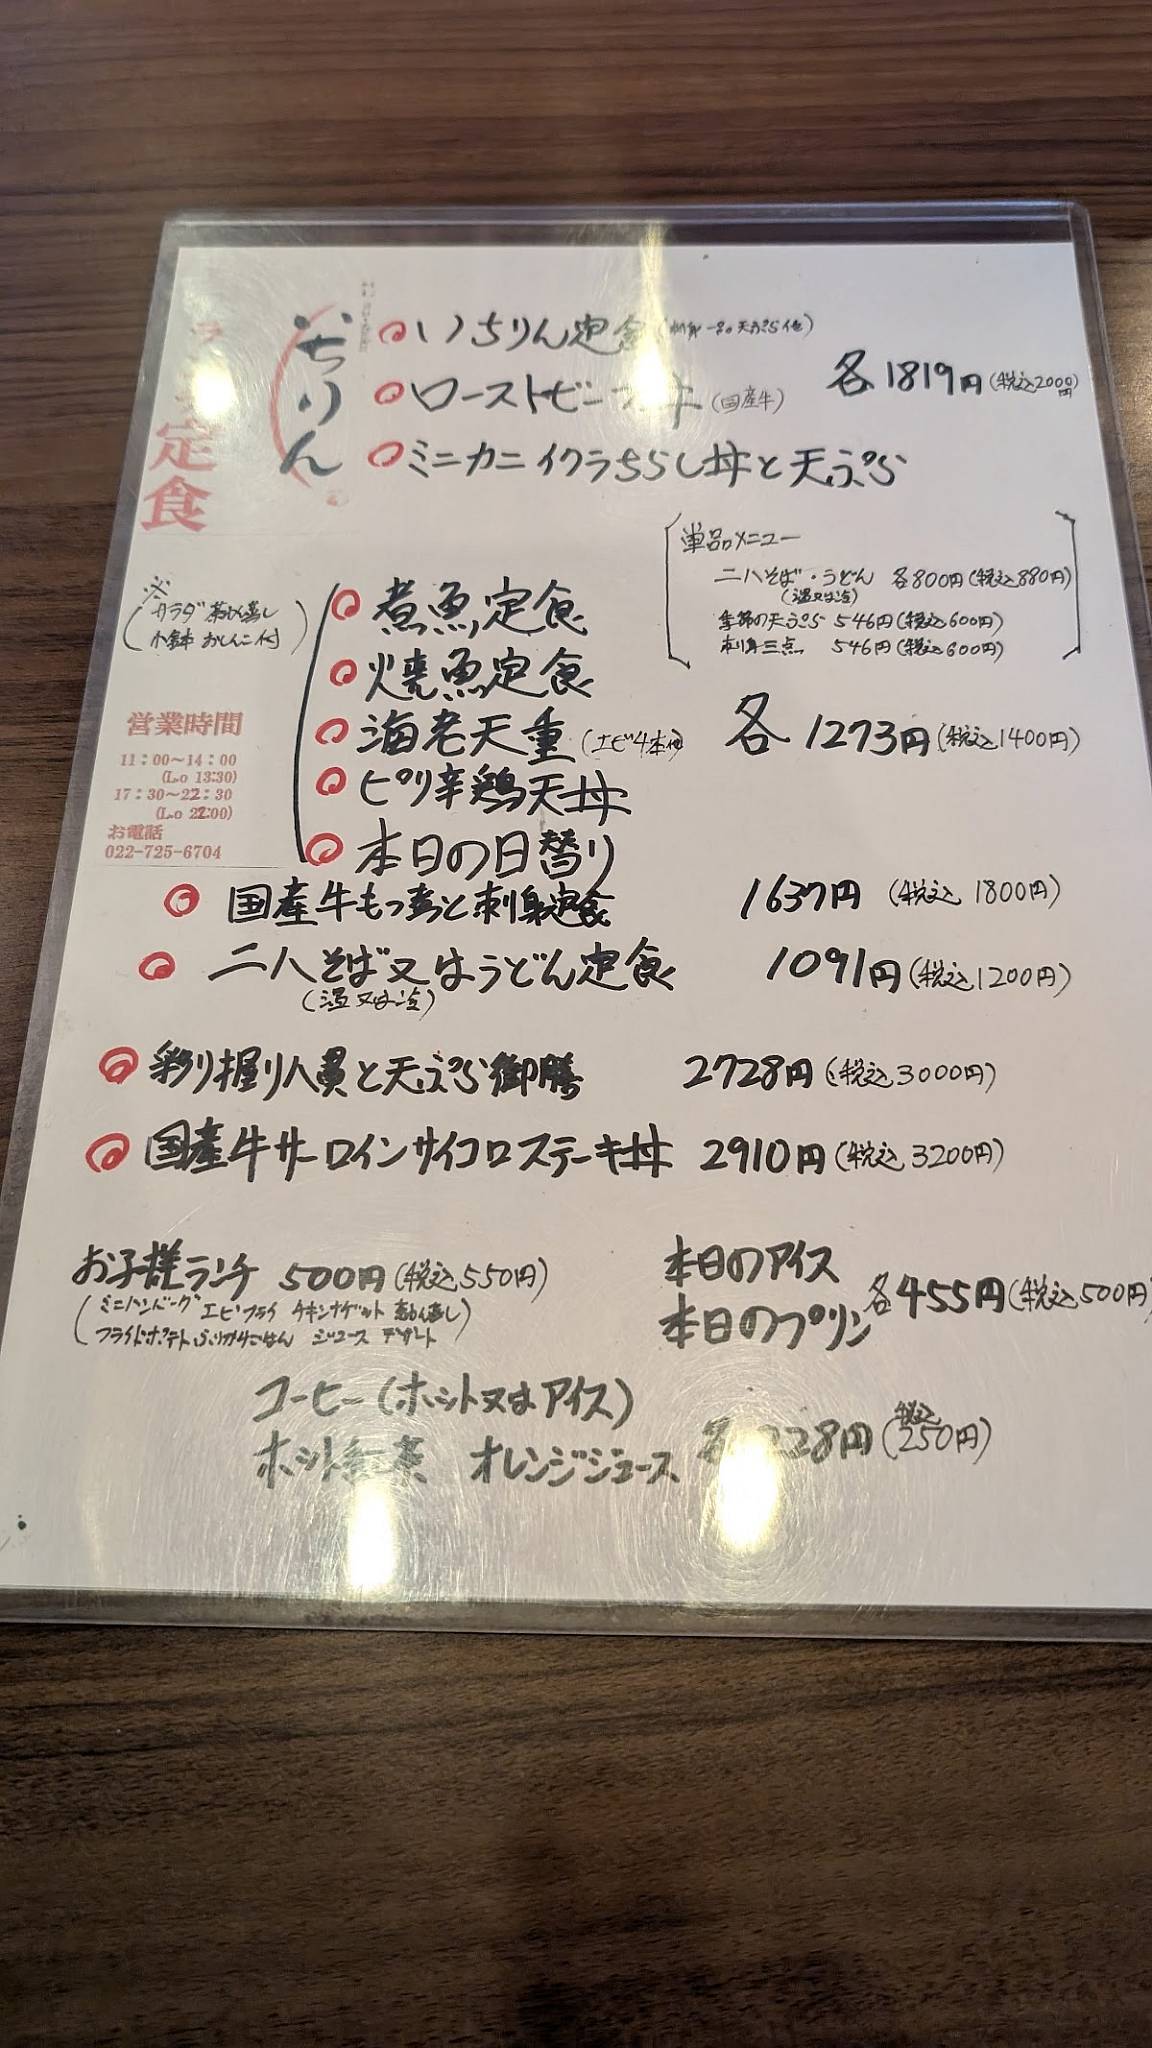 定食
いちりん
いちりん定食
ローストビーフ丼(国産牛)
各1819円(税込2000円)
ミニカニイクラちらし丼と天ぷら
単品メニュー
二八そば・うどん 各800円(税込880円)
(温又は冷)
季節の天ぷら 546円(税込600円)
刺身三点 546円(税込600円)
※
(サラダ 茶わん蒸し
小鉢 おしんこ付)
煮魚定食
焼魚定食
海老天重(エビ4本他)
各1273円(税込1400円)
ピリ辛鶏天丼
本日の日替り
営業時間
11:00〜14:00
(Lo 13:30)
17:30〜22:30
(Lo 22:00)
お電話
022-725-6704
国産牛もつ煮と刺身定食 1637円(税込1800円)
二八そば又はうどん定食 1091円(税込1200円)
(温又は冷)
彩り握り八貫と天ぷら御膳 2728円(税込3000円)
国産牛サーロインサイコロステーキ丼 2910円(税込3200円)
お子様ランチ 500円(税込550円)
(ミニハンバーグ エビフライ チキンナゲット 茶わん蒸し
フライドポテト ふりかけごはん ジュース デザート)
本日のアイス
本日のプリン
各455円(税込500円)
コーヒー(ホット又はアイス)
ホット紅茶 オレンジジュース
各228円(税込250円)